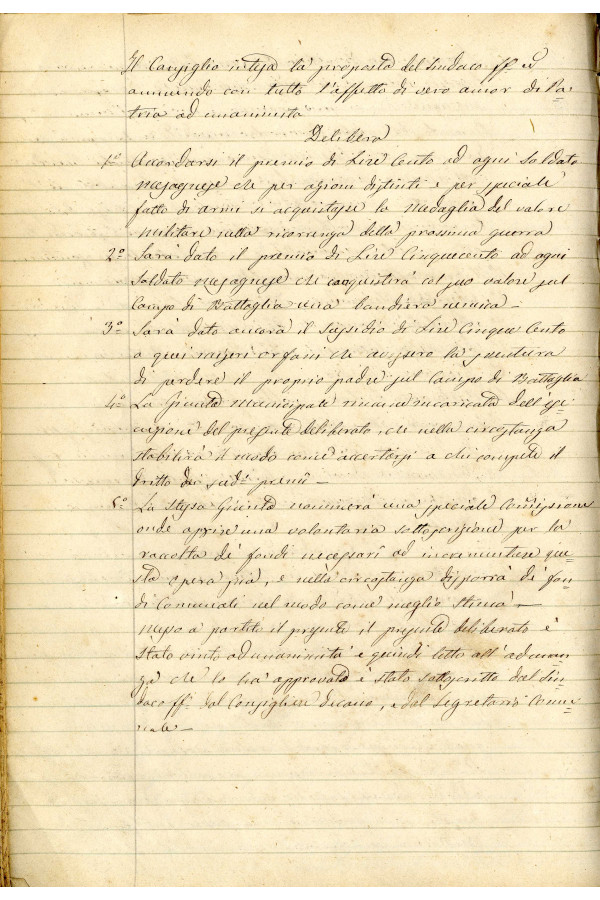 Il Consiglio intesa la proposta del Sindaco ff. ed
annuendo con tutto l'affetto di vero amor di Pa=
tria ad unanimità
Delibera
1º Accordarsi il premio di Lire Cento ad ogni Soldato
Mesagnese che per azioni distinti e per speciale
fatto di armi si acquistasse la Medaglia del valore
Militare nella ricorrenza della prossima guerra
2º Sarà dato il premio di Lire Cinquecento ad ogni
Soldato Mesagnese che conquisterà col suo valore sul
Campo di Battaglia una bandiera nemica –
3º Sarà dato ancora il Sussidio di Lire Cinque Cento
a quei miseri orfani che avessero la sventura
di perdere il proprio padre sul Campo di Battaglia
4º La Giunta Municipale rimane incaricata dell'ese=
cuzione del presente deliberato, che nella circostanza
stabilirà il modo come accertarsi a chi compete il
dritto dei sudi. premii –
5º La stessa Giunta nominerà una speciale Commissione
onde aprire una volontaria sottoscrizione per la
raccolta de' fondi necessarî ad incrementare que=
sta opera pia, e nella circostanza disporrà de' fon=
di Comunali nel modo come meglio stima –
Messo a partito il presente il presente deliberato è
stato vinto ad unanimità e quindi letto all'adunan=
za che lo ha approvato è stato sottoscritto dal Sin=
daco ff. dal Consigliere Decano, e dal Segretario Comu=
nale –